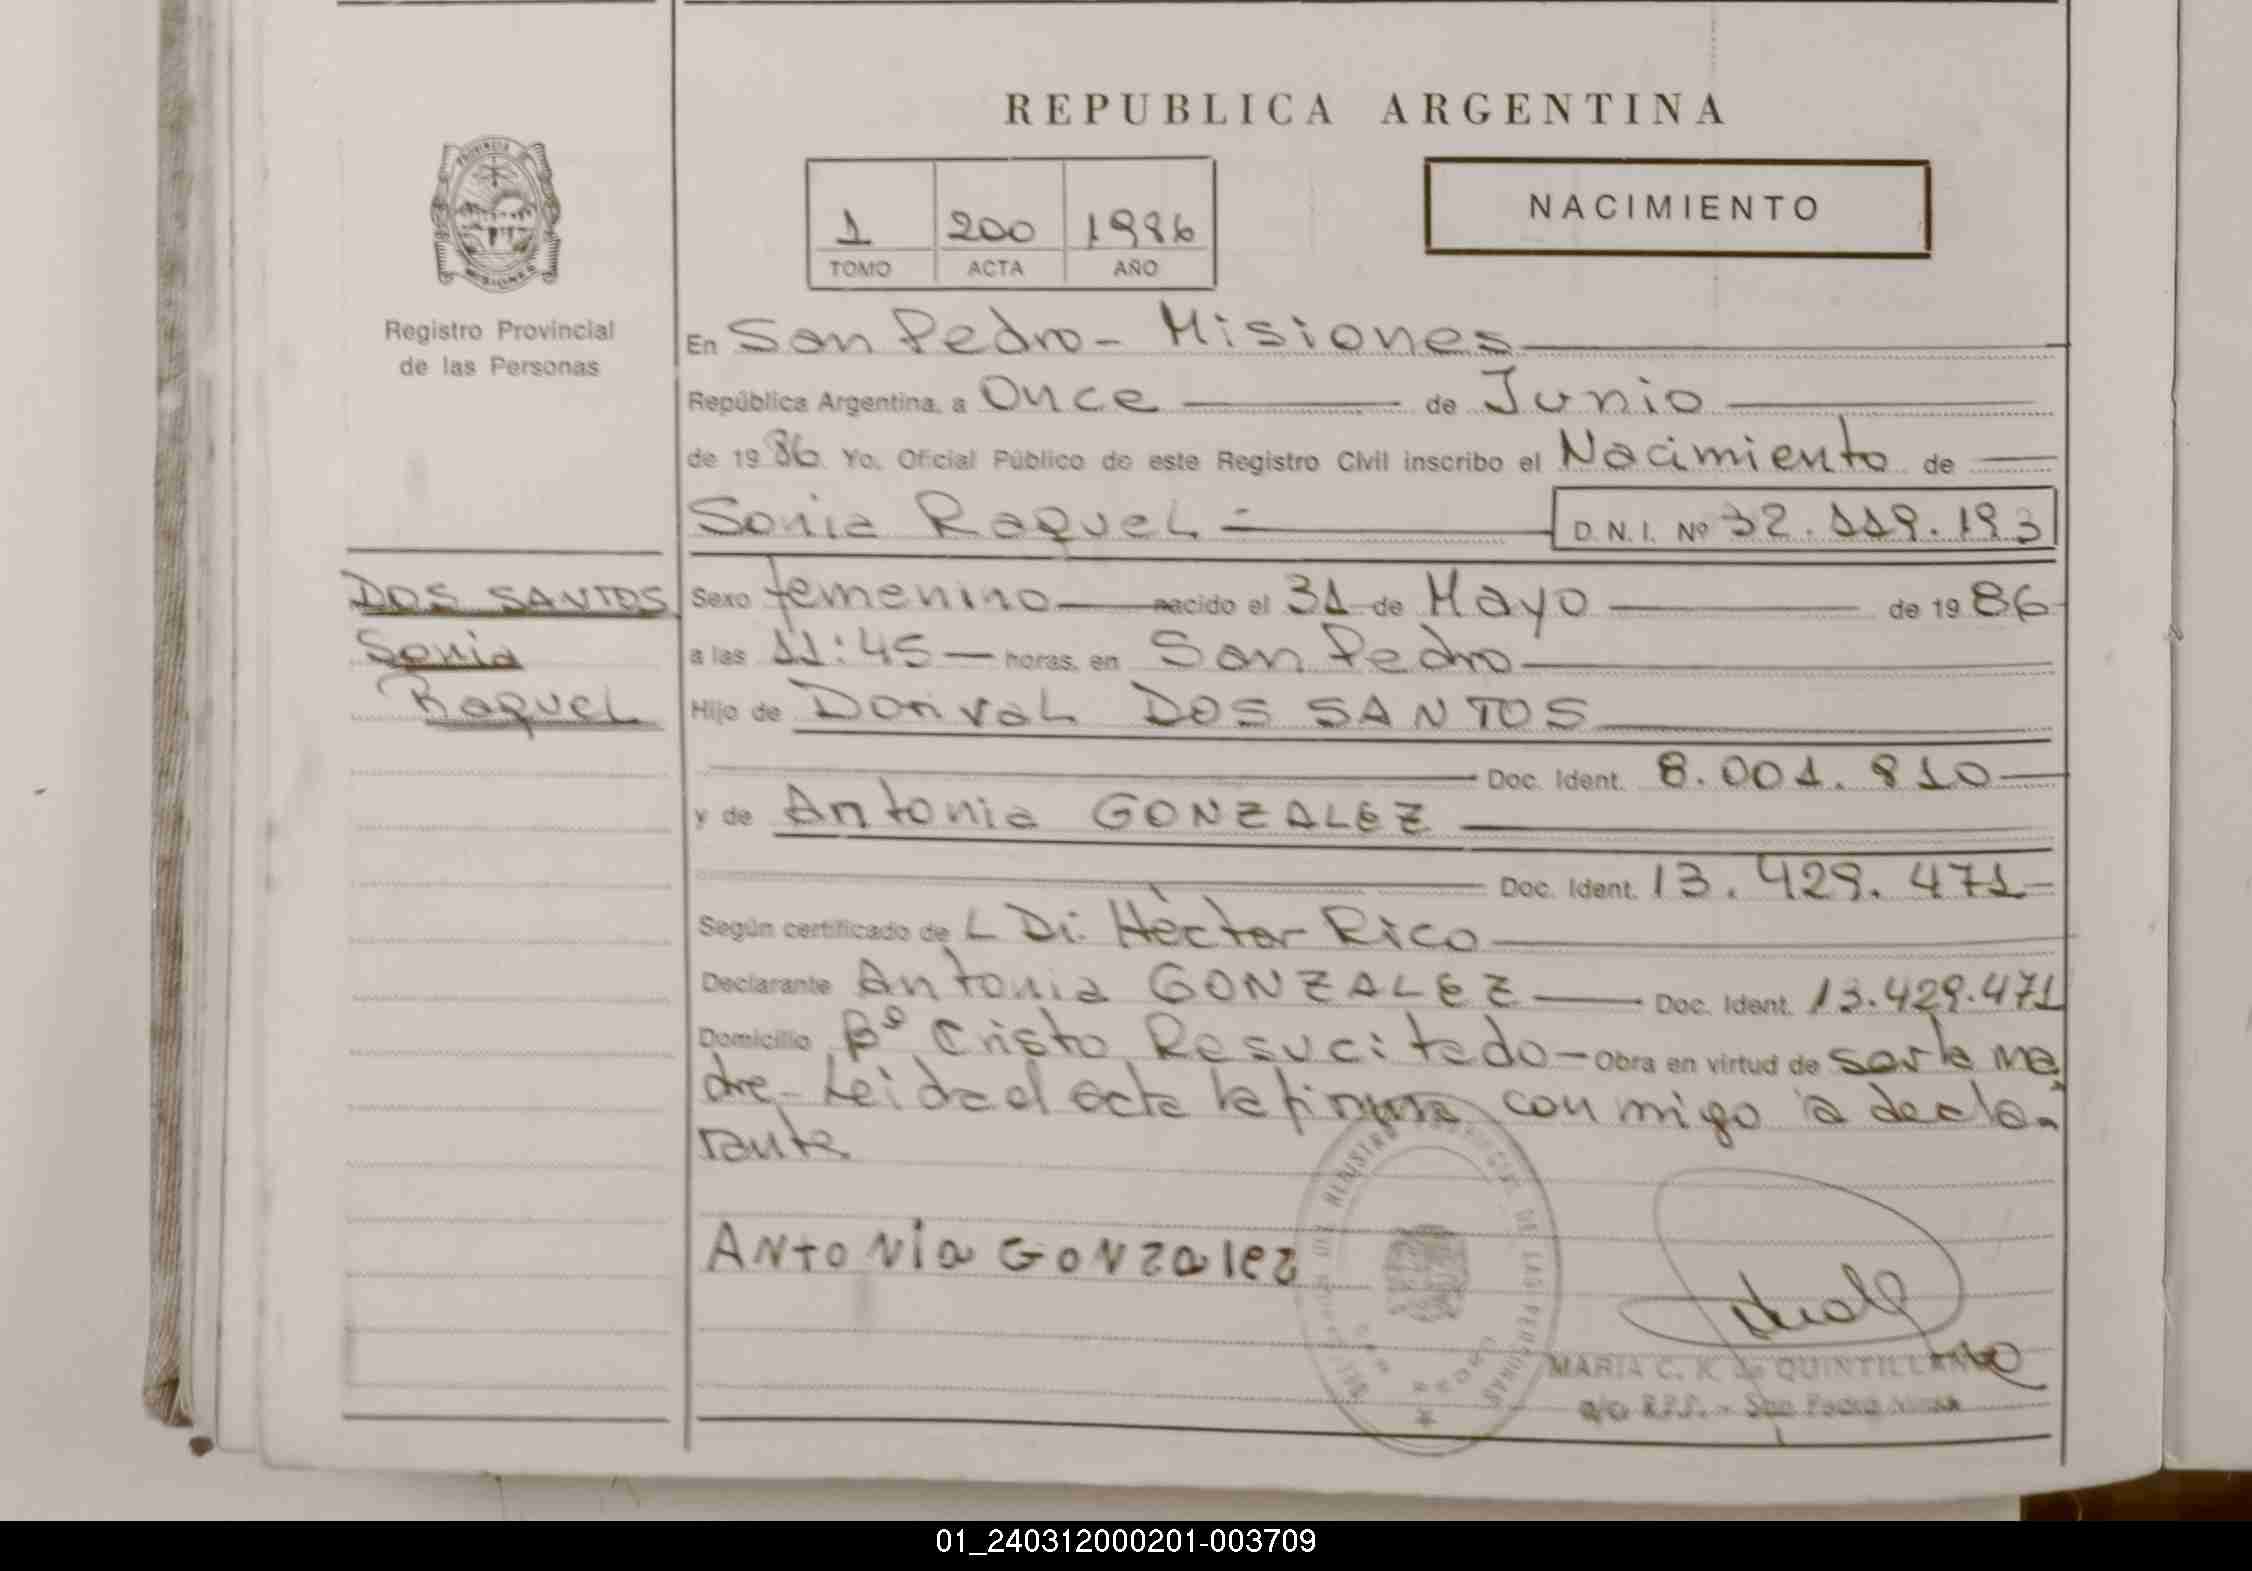 REPUBLICA ARGENTINA
1 200 1986
TOMO ACTA AÑO
NACIMIENTO
PROVINCIA DE
MISIONES
Registro Provincial
de las Personas
En San Pedro - Misiones
República Argentina, a Once de Junio
de 1986 Yo, Oficial Público de este Registro Civil inscribo el Nacimiento de
Sonia Raquel D.N.I. Nº 32.119.193
DOS SANTOS
Sonia
Raquel
Sexo femenino nacido el 31 de Mayo de 1986
a las 11:45 horas, en San Pedro
Hijo de Dorival DOS SANTOS
Doc. Ident. 8.001.810
y de Antonia GONZALEZ
Doc. Ident. 13.429.471
Según certificado de L Dr. Hèctor Rico
Declarante Antonia GONZALEZ Doc. Ident. 13.429.471
Domicilio Bº Cristo Resucitado - Obra en virtud de ser la ma
dre - Leida el acta la firma con migo la decla-
rante
ANtoNia GoNzalez
DE LAS PERSONAS
MARIA C. K. de QUINTILLANO
a/c R.P.P. - San Pedro
01_240312000201-003709